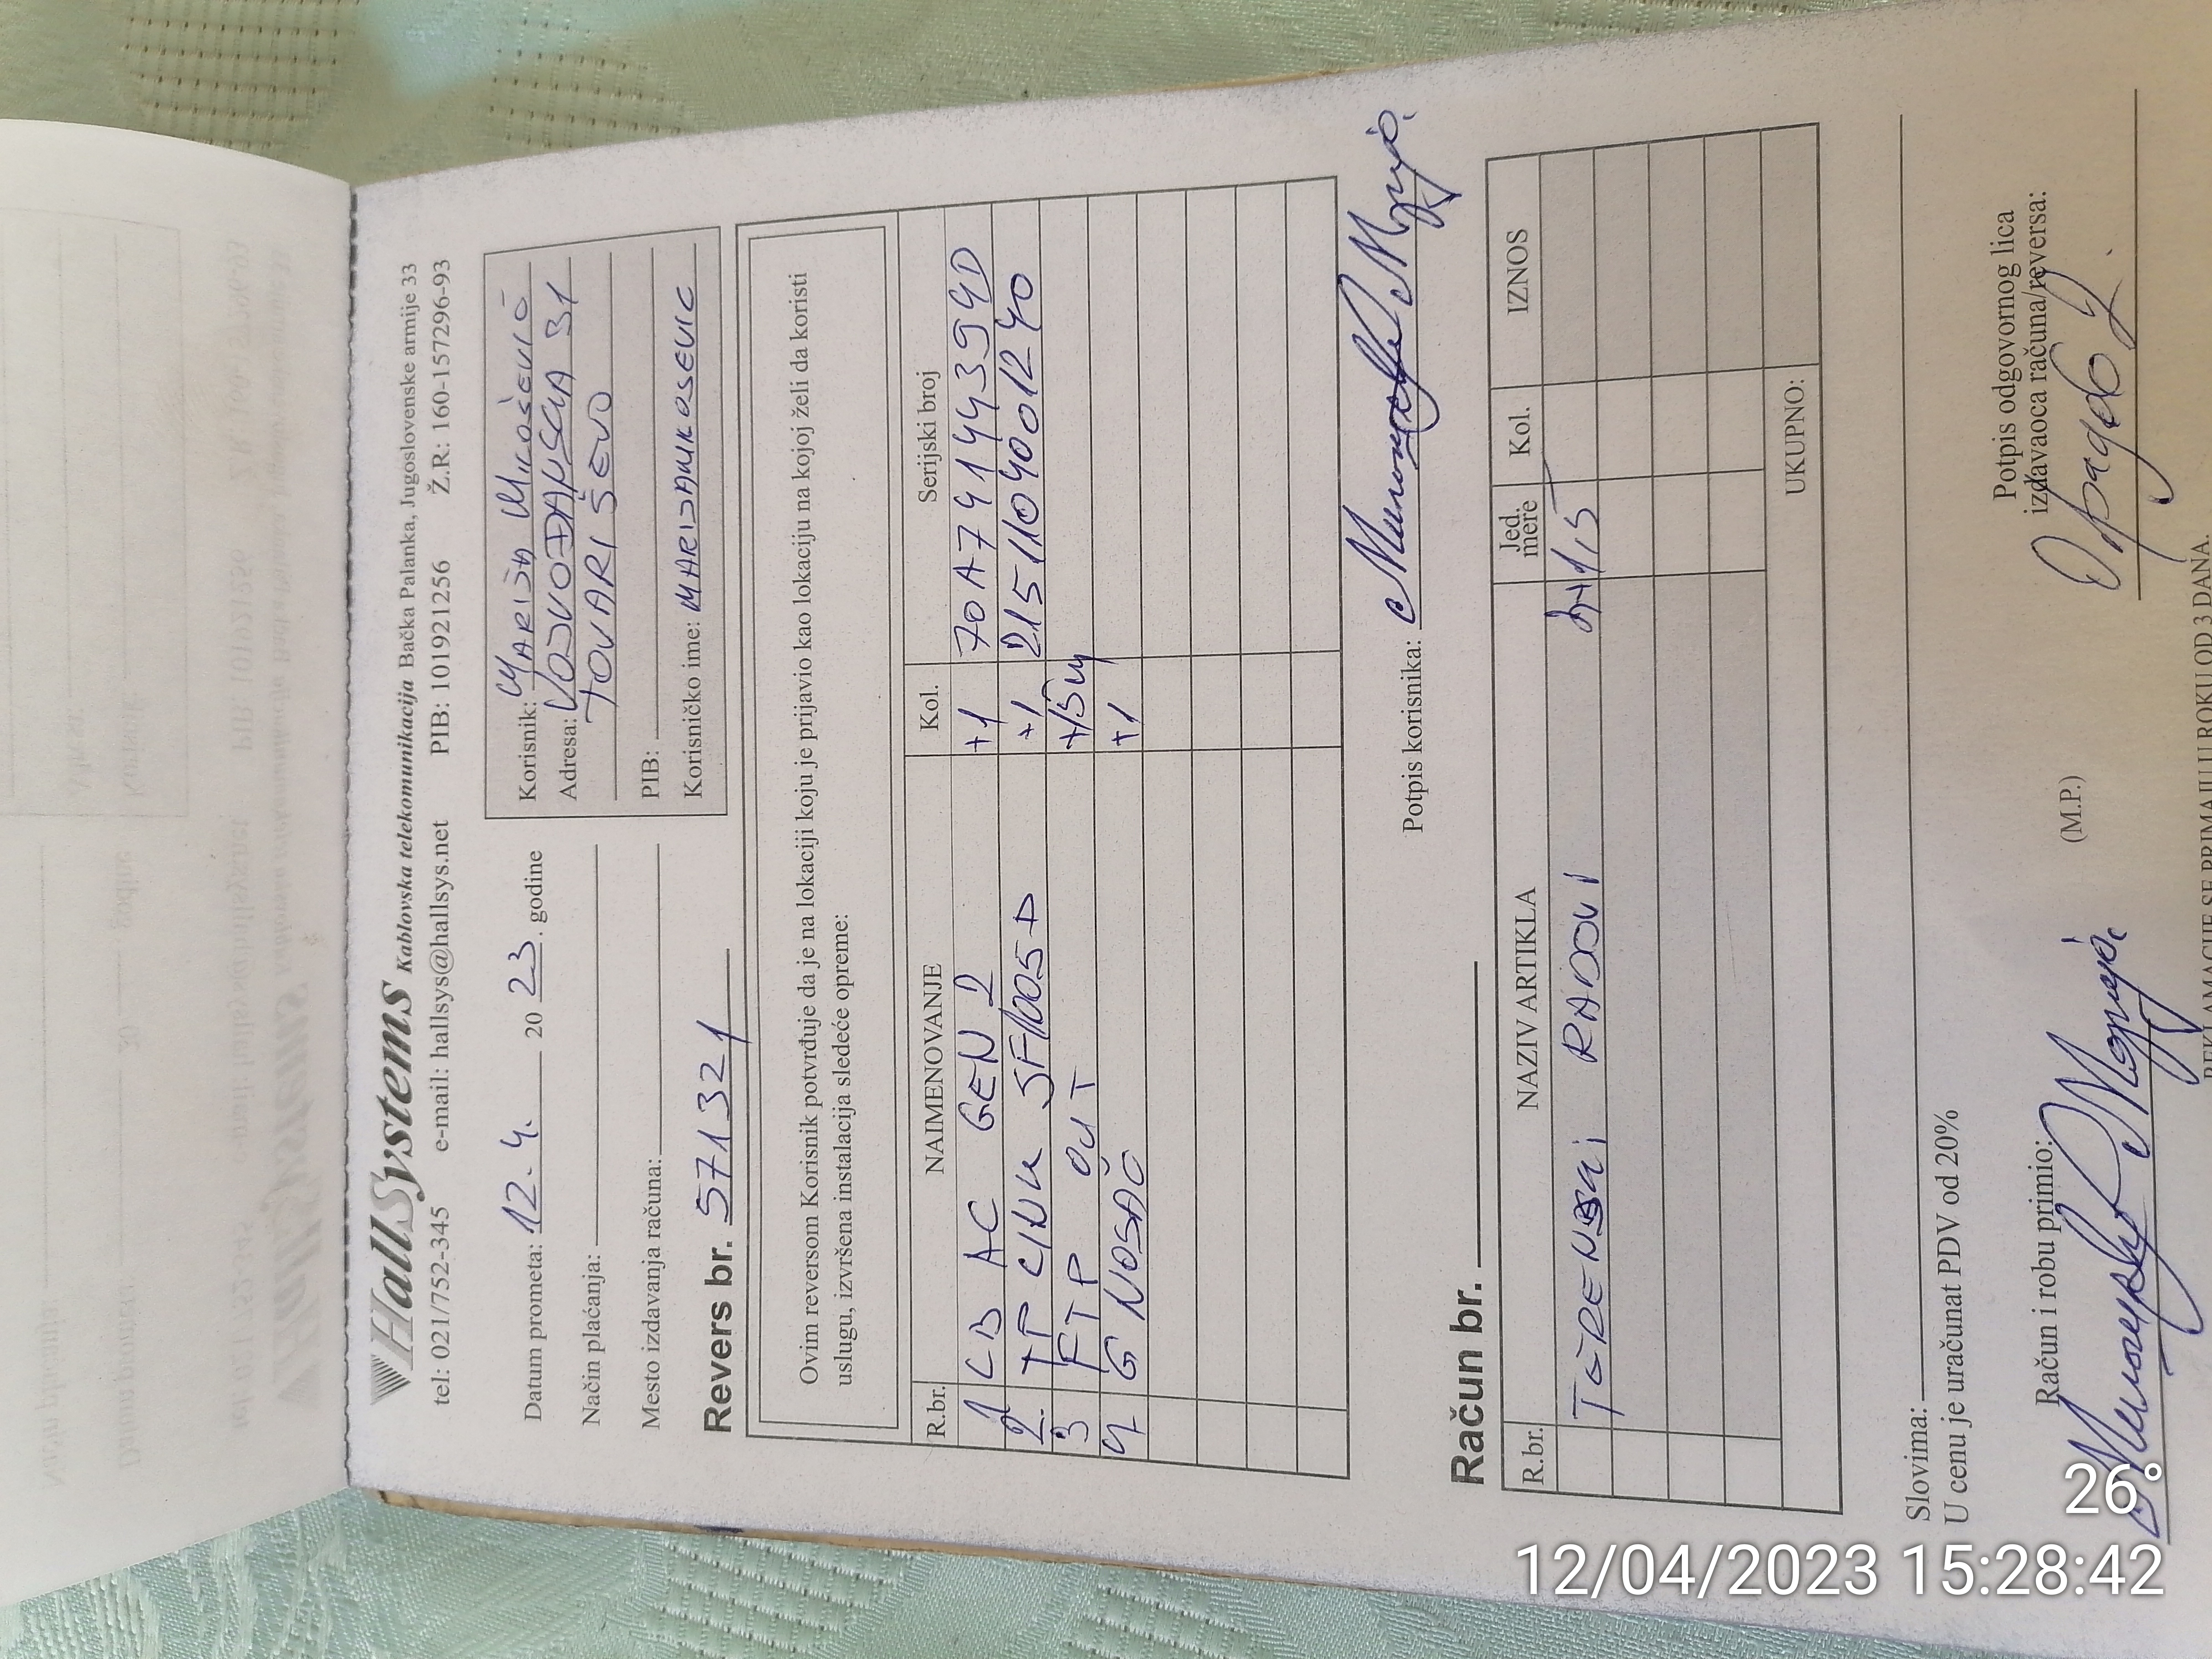 HallSystems Kablovska telekomunikacija Bačka Palanka, Jugoslovenske armije 33
tel: 021/752-345 e-mail: hallsys@hallsys.net PIB: 101921256 Ž.R.: 160-157296-93
Datum prometa: 12.4. 2023. godine
Način plaćanja:
Mesto izdavanja računa:
Revers br. 571321
Korisnik: MARIJA MIKOŠEVIĆ
Adresa: VOJVOĐANSKA 31
TOVARIŠEVO
PIB:
Korisničko ime: MARIJAMIKOSEVIC
Ovim reversom Korisnik potvrđuje da je na lokaciji koju je prijavio kao lokaciju na kojoj želi da koristi
uslugu, izvršena instalacija sledeće opreme:
R.br. NAIMENOVANJE Kol. Serijski broj
1 LB AC GEN 2 +1 70A74144394D
2. TP LINK SF1005D +1 2151104001240
3 FTP OUT +15m
4 G NOSAČ +1
Potpis korisnika:
Račun br.
R.br. NAZIV ARTIKLA Jed. mere Kol. IZNOS
TERENSKI RADOVI
UKUPNO:
Slovima:
U cenu je uračunat PDV od 20%
Račun i robu primio:
(M.P.)
Potpis odgovornog lica
izdavaoca računa/reversa:
REKLAMACIJE SE PRIMAJU U ROKU OD 3 DANA.
26°
12/04/2023 15:28:42